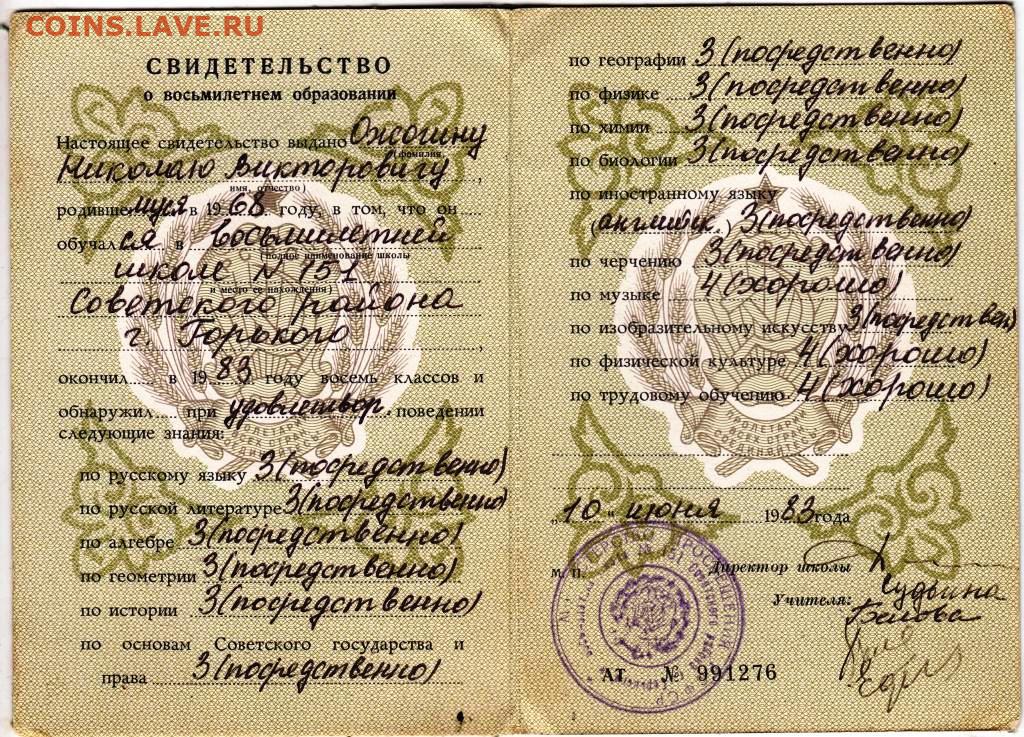 COINS.LAVE.RU
СВИДЕТЕЛЬСТВО
о восьмилетнем образовании
Настоящее свидетельство выдано Ожогину
(фамилия,
Николаю Викторовичу
имя, отчество)
родившемуся в 1968. году, в том, что он
обучался в восьмилетней
(полное наименование школы
школе N 151
и место ее нахождения)
Советского района
г. Горького
окончил в 1983. году восемь классов и
обнаружил при удовлетвор. поведении
следующие знания:
по русскому языку 3 (посредственно)
по русской литературе 3 (посредственно)
по алгебре 3 (посредственно)
по геометрии 3 (посредственно)
по истории 3 (посредственно)
по основам Советского государства и
права 3 (посредственно)
по географии 3 (посредственно)
по физике 3 (посредственно)
по химии 3 (посредственно)
по биологии 3 (посредственно)
по иностранному языку
(английск.) 3 (посредственно)
по черчению 3 (посредственно)
по музыке 4 (хорошо)
по изобразительному искусству 3 (посредствен)
по физической культуре 4 (хорошо)
по трудовому обучению 4 (хорошо)
„10" июня 1983 года
М. П. Директор школы
Учителя:
Белова
АТ № 991276